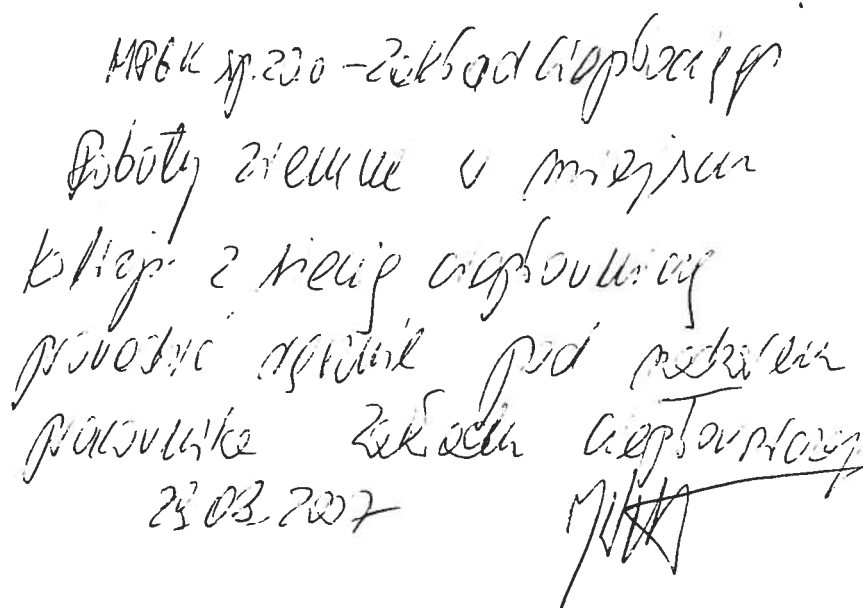 MPGK sp. z o.o - Zakład Ciepłowniczy
Roboty ziemne w miejscu
kolizji z siecią ciepłowniczą
prowadzić ręcznie pod nadzorem
pracownika Zakładu Ciepłowniczego
29.03.2007